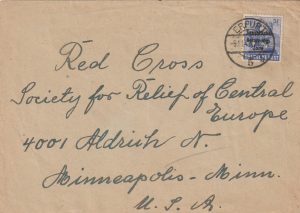 ERFURT
Red Cross
Society for Relief of Central
Europe
4001 Aldrich N.
Minneapolis - Minn.
U. S. A.